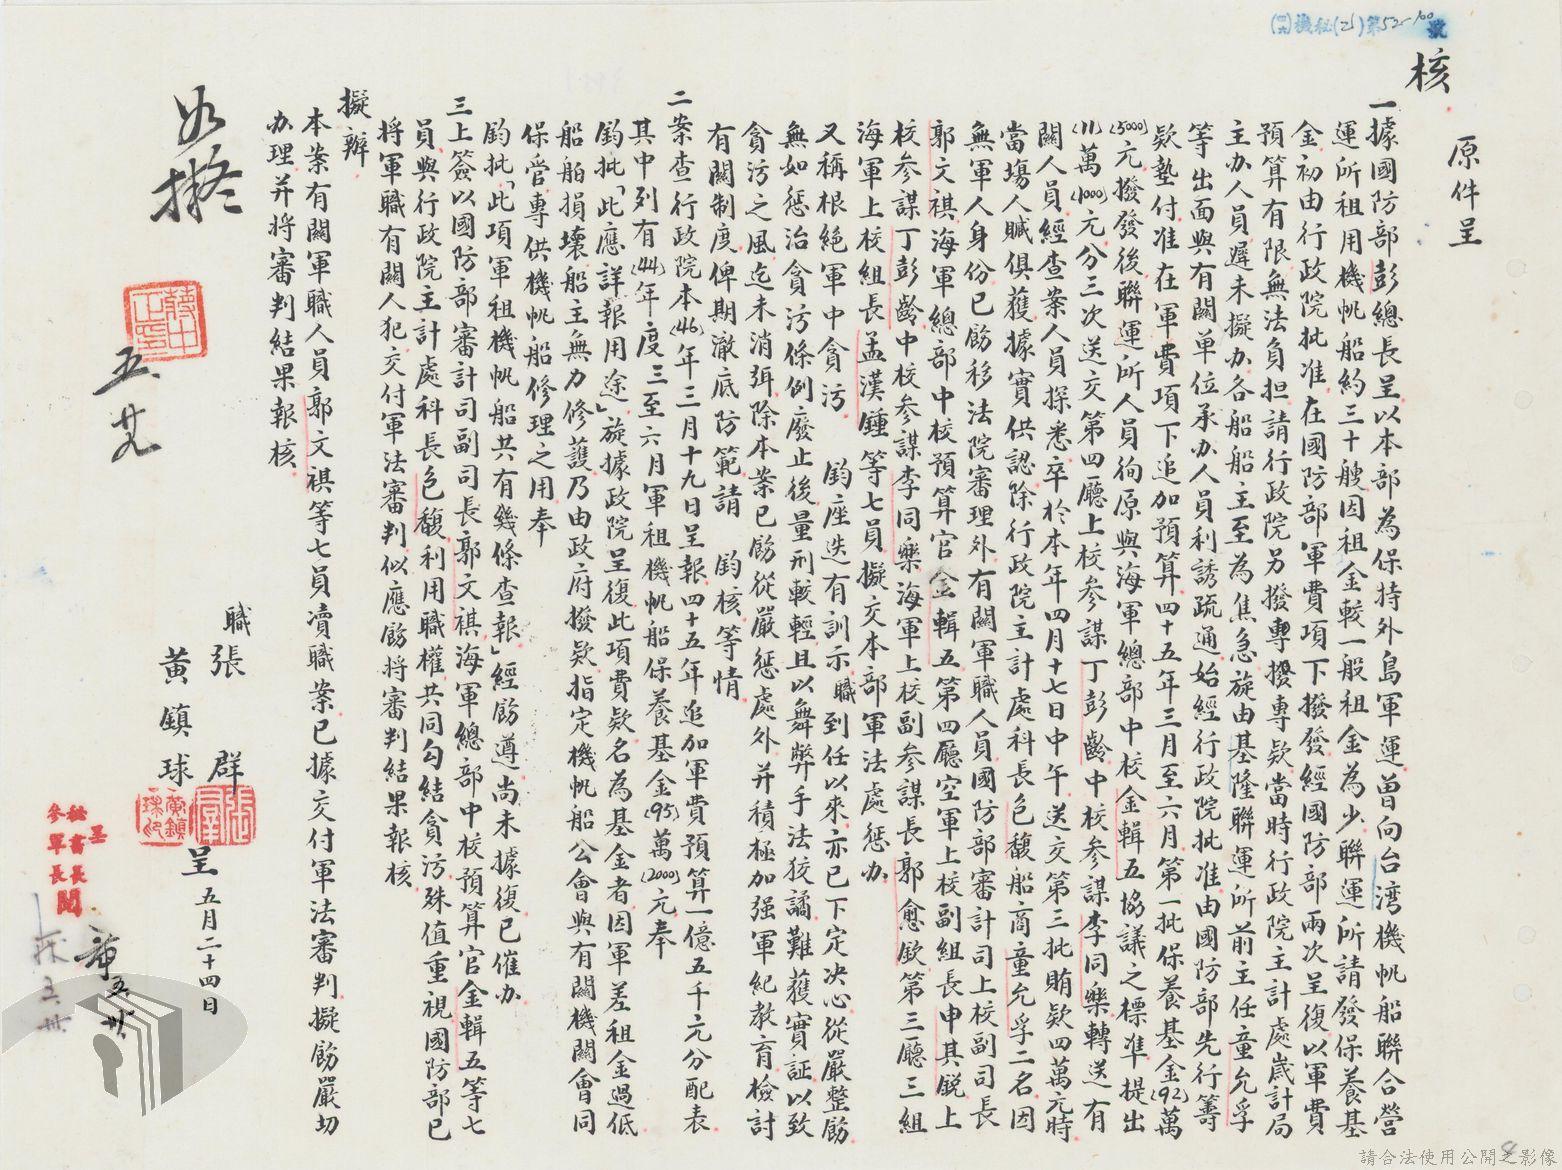 (四六)機秘(乙)第52-100號
核
原件呈
一據國防部彭總長呈以本部為保持外島軍運曾向台湾機帆船聯合營
運所租用機帆船約三十艘因租金較一般租金為少聯運所請發保養基
金初由行政院批准在國防部軍費項下撥發經國防部兩次呈復以軍費
預算有限無法負担請行政院另撥專款當時行政院主計處歲計局
主办人員遲未擬办各船船主至為焦急旋由基隆聯運所前主任童允孚
等出面與有關单位承办人員利誘疏通始經行政院批准由國防部先行籌
款墊付准在軍費項下追加預算四十五年三月至六月第一批保養基金(92)萬
(5000)元撥發後聯運所人員徇原與海軍總部中校金輯五協議之標準提出
(11)萬(1000)元分三次送交第四廳上校参謀丁彭齡中校参謀李同樂轉送有
關人員經查案人員探悉卒於本年四月十七日中午送交第三批賄款四萬元時
當場人贓俱獲據實供認除行政院主計處科長色馥船商童允孚二名因
無軍人身份已飭移法院審理外有關軍職人員國防部審計司上校副司長
郭文祺海軍總部中校預算官金輯五第四廳空軍上校副組長申其銳上
校参謀丁彭齡中校参謀李同樂海軍上校副参謀長郭愈欽第三廳三組
海軍上校組長孟漢鍾等七員擬交本部軍法處懲办
又稱根絕軍中貪污　鈞座迭有訓示職到任以來亦已下定决心從嚴整飭
無如懲治貪污條例廢止後量刑較輕且以舞弊手法狡譎難獲實証以致
貪污之風迄未消弭除本案已飭從嚴懲處外并積極加强軍紀教育檢討
有關制度俾期澈底防範請　鈞核等情
二案查行政院本(46)年三月十九日呈報四十五年追加軍費預算一億五千元分配表
其中列有(44)年度三至六月軍租機帆船保養基金(95)萬(2000)元奉
鈞批「此應詳報用途」旋據政院呈復此項費款名為基金者因軍差租金過低
船舶損壞船主無力修護乃由政府撥款指定機帆船公會與有關機關會同
保管專供機帆船修理之用奉
鈞批「此項軍租機帆船共有幾條查報」經飭遵尚未據復已催办
三上簽以國防部審計司副司長郭文祺海軍總部中校預算官金輯五等七
員與行政院主計處科長色馥利用職權共同勾結貪污殊值重視國防部已
將軍職有關人犯交付軍法審判似應飭將審判結果報核
擬辦
本案有關軍職人員郭文祺等七員瀆職案已據交付軍法審判擬飭嚴切
办理并將審判結果報核
職張羣
黃鎮球
呈 五月二十四日
如擬
五、廿九
秘書長
参軍長
呈閱
請合法使用公開之影像